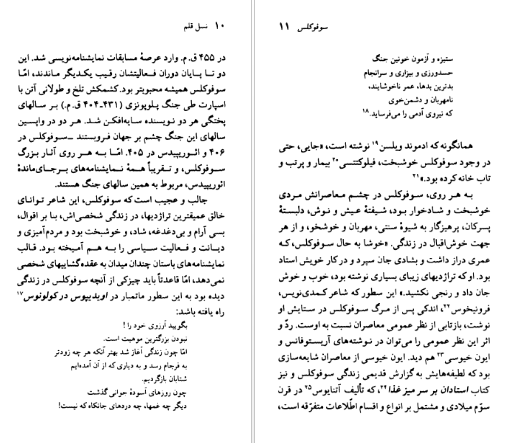 ۱۰ نسل قلم
در ۴۵۵ ق.م. وارد عرصهٔ مسابقات نمایشنامه‌نویسی شد. این
دو تا پایان دوران فعالیتشان رقیب یکدیگر ماندند، امّا
سوفوکلس همیشه محبوبتر بود. کشمکش تلخ و طولانی آتن با
اسپارت طی جنگ پلوپونزی (۴۳۱-۴۰۴ ق.م.) بر سالهای
پختگی هر دو نویسنده سایه‌افکن شد. هر دو در واپسین
سالهای این جنگ چشم بر جهان فروبستند ـ سوفوکلس در
۴۰۶ و ائوریپیدس در ۴۰۵. امّا به هر روی آثار بزرگ
سوفوکلس، و تقریباً همهٔ نمایشنامه‌های برجای‌ماندهٔ
ائوریپیدس، مربوط به همین سالهای جنگ هستند.
جالب و عجیب است که سوفوکلس، این شاعر توانای
خالق عمیقترین تراژدیها، در زندگی شخصی‌اش، بنا بر اقوال،
بی آرام و بی‌دغدغه، شاد، و خوشبخت بود و مردم‌آمیزی و
دیانت و فعالیت سیاسی را به هم آمیخته بود. قالب
نمایشنامه‌های باستان چندان میدان به عقده‌گشاییهای شخصی
نمی‌دهد، امّا قاعدتاً باید چیزکی از آنچه سوفوکلس در زندگی
دیده بود به این سطور ماتمبار در اودیپوس در کولونوس۱۷
راه یافته باشد:
بگویید آرزوی خود را !
نبودن بزرگترین موهبت است.
امّا چون زندگی آغاز شد بهتر آنکه هر چه زودتر
به فرجام رسد و به دیاری که از آن آمده‌ایم
شتابان بازگردیم.
چون روزهای آسودهٔ جوانی گذشت
دیگر چه غمها، چه دردهای جانکاه که نیست!
سوفوکلس ۱۱
ستیزه و آزمون خونین جنگ
حسدورزی و بیزاری و سرانجام
بدترین بدها، عمر ناخوشایند،
نامهربان و دشمن‌خوی
که نیروی آدمی را می‌فرساید.۱۸
همانگونه که ادموند ویلسن۱۹ نوشته است، «جایی، حتی
در وجود سوفوکلس خوشبخت، فیلوکتتی۲۰ بیمار و پرتب و
تاب خانه کرده بود.»۲۱
به هر روی، سوفوکلس در چشم معاصرانش مردی
خوشبخت و شادخوار بود، شیفتهٔ عیش و نوش، دلبستهٔ
پسرکان، پرهیزگار به شیوهٔ سنتی، مهربان و خوشخو، و از هر
جهت خوش‌اقبال در زندگی. «خوشا به حال سوفوکلس، که
عمری دراز داشت و بشادی جان سپرد و در کار خویش استاد
بود. او که تراژدیهای زیبای بسیاری نوشته بود، خوب و خوش
جان داد و رنجی نکشید.» این سطور که شاعر کمدی‌نویس،
فرونیخوس۲۲، اندکی پس از مرگ سوفوکلس در ستایش او
نوشت، بازتابی از نظر عمومی معاصران نسبت به اوست. ردّ و
اثر این نظر عمومی را می‌توان در نوشته‌های آریستوفانس و
ایون خیوسی۲۳ هم دید. ایون خیوسی از معاصران شایعه‌سازی
بود که لطیفه‌هایش به گزارش قدیمی زندگی سوفوکلس و نیز
کتاب استادان بر سر میز غذا۲۴، که تألیف آتنایوس۲۵ در قرن
سوّم میلادی و مشتمل بر انواع و اقسام اطّلاعات متفرّقه است،